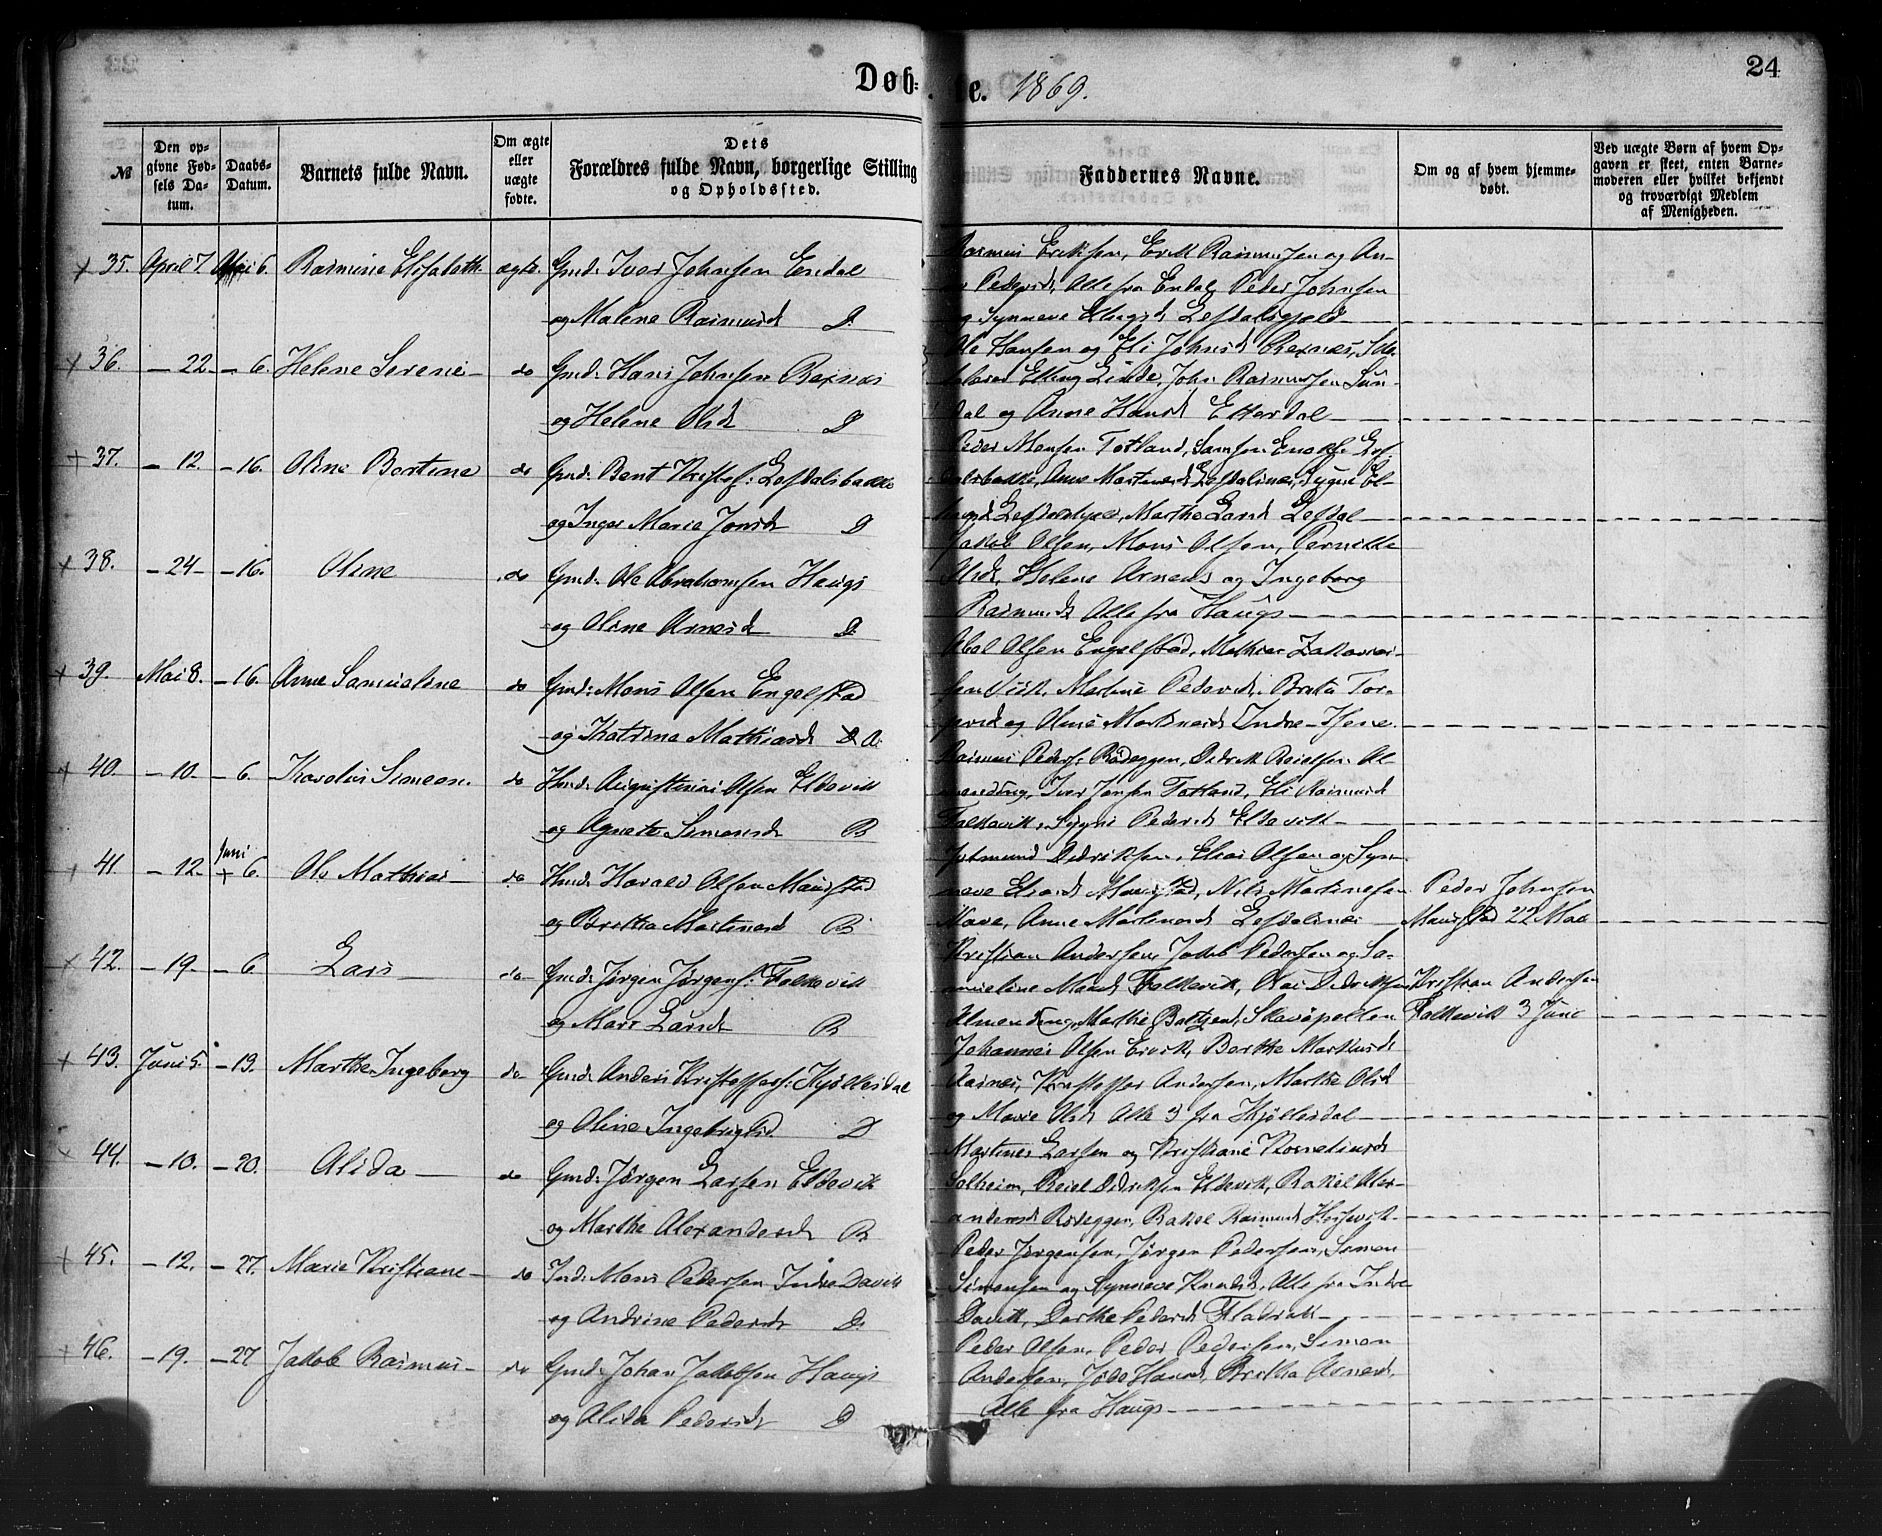 Døb: te. 1869.
24
№
Den opgivne Fødsels Datum.
Daabs-Datum.
Barnets fulde Navn.
Om ægte eller uægte fødte.
Dets Forældres fulde Navn, borgerlige Stilling og Opholdssted.
Faddernes Navne.
Om og af hvem hjemmedøbt.
Ved uægte Børn af hvem Opgaven er skeet, enten Barnemoderen eller hvilket bekjendt og troværdigt Medlem af Menigheden.
35. April 7 Mai 6. Rasmine Elisabeth ægte. Gmd: Iver Johnsen Endal
og Malene Rasmusd D.
Rasmus Eriksen, Erik Rasmussen og An-
Pedersd, Alle fra Endal, Peder Johnsen
og Synneve Lefdalsgjeld
36. - 22 - 6. Helene Serene do Gmd: Hans Johnsen Rexnæs
og Helene Olsd D
Ole Hansen og Eli Johnsd Rexnæs,
Elling Linde, John Rasmussen Sun-
dal og Anne Hansd Etterdal
37. - 12. - 16. Oline Bertine do Gmd: Bent Kristof: Lefdalsbakke
og Inger Marie Jonsd D
Peder Monsen Totland, Samson Lef-
dalsbakke, Anne Martinusd Lefdalsnes, Sygni El-
Lefdalsgjeld, Marthe Larsd Lefdal
38. - 24 - 16. Oline do Gmd: Ole Abrahamsen Haugs
og Oline Arnesd D.
Jakob Olsen, Mons Olsen, Pernille
Olsd, Helene Arnesd og Ingeborg
Rasmusd Alle fra Haugs
39. Mai 8. - 16. Anne Samueline do Gmd: Mons Olsen Engelstad
og Katrina Mathiasd D. A:
Abel Olsen Engelstad, Mathias Zakarias-
sen Martine Pedersd, Brita Tor-
og Oline Martinusd Indre-Hjene
40. - 10. - 6. Karolus Simeon. do Hmd: Augustinus Olsen Eldevik
og Agnete Simonsd B
Rasmus Peders: Rødeggen, Didrik Reielsen Al-
mending, Iver Jensen Totland, Eli Rasmusd
Falkevik, Sygni Pedersd Eldevik
41. - 12. Juni 6. Ole Mathias do Hmd: Harald Olsen Maurstad
og Brithe Martinusd B
Gutmund Didriksen, Elias Olsen og Syn-
neve Eliasd Maurstad, Nils Martinusen
Anne Martinusd Lefdalsnes
Peder Johnsen
Maurstad 22 Mai
42. - 19. - 6 Lars do Gmd: Jørgen Jørgens: Falkevik
og Mari Larsd B
Kristian Andersen, Jakob Pedersen og Sa-
mueline Monsd Falkevik, Didriksen
Almending, Marthe Baltzersd, Skavøpollen
Kristian Andersen
Falkevik 3 Juni
43. Juni 5. - 13. Marthe Ingeborg do Gmd: Anders Kristoffers: Kjøllesdal
og Oline Ingebrigtsd. D
Johannes Olsen Ervik, Berthe Markusd
Kristoffer Andersen, Marthe Olsd
og Marie Olsd Alle 3 fra Kjøllesdal
44. - 10. - 20. Alida do Gmd: Jørgen Larsen Eldevik
og Marthe Alexandersd B.
Martinus Larsen og Kristiane Korneliusd
Solheim, Reiel Didriksen Eldevik, Rakel Alex-
andersd Rødeggen, Rakel Rasmusd
45. - 12. - 27. Marie Kristiane do Ind: Mons Pedersen Indre Davik
og Andrine Pedersd D.
Peder Jørgensen, Jørgen Pedersen, Simon
Simonsen og Synneve Knudsd, Alle fra Indre
Davik, Dorthe Pedersd
46. - 19. - 27 Jakob Rasmus do Gmd: Johan Jakobsen Haugs
og Alida Pedersd D
Peder Olsen, Peder Pedersen, Simon
Andersen, Hansd, Brithe Arnesd,
Alle fra Haugs